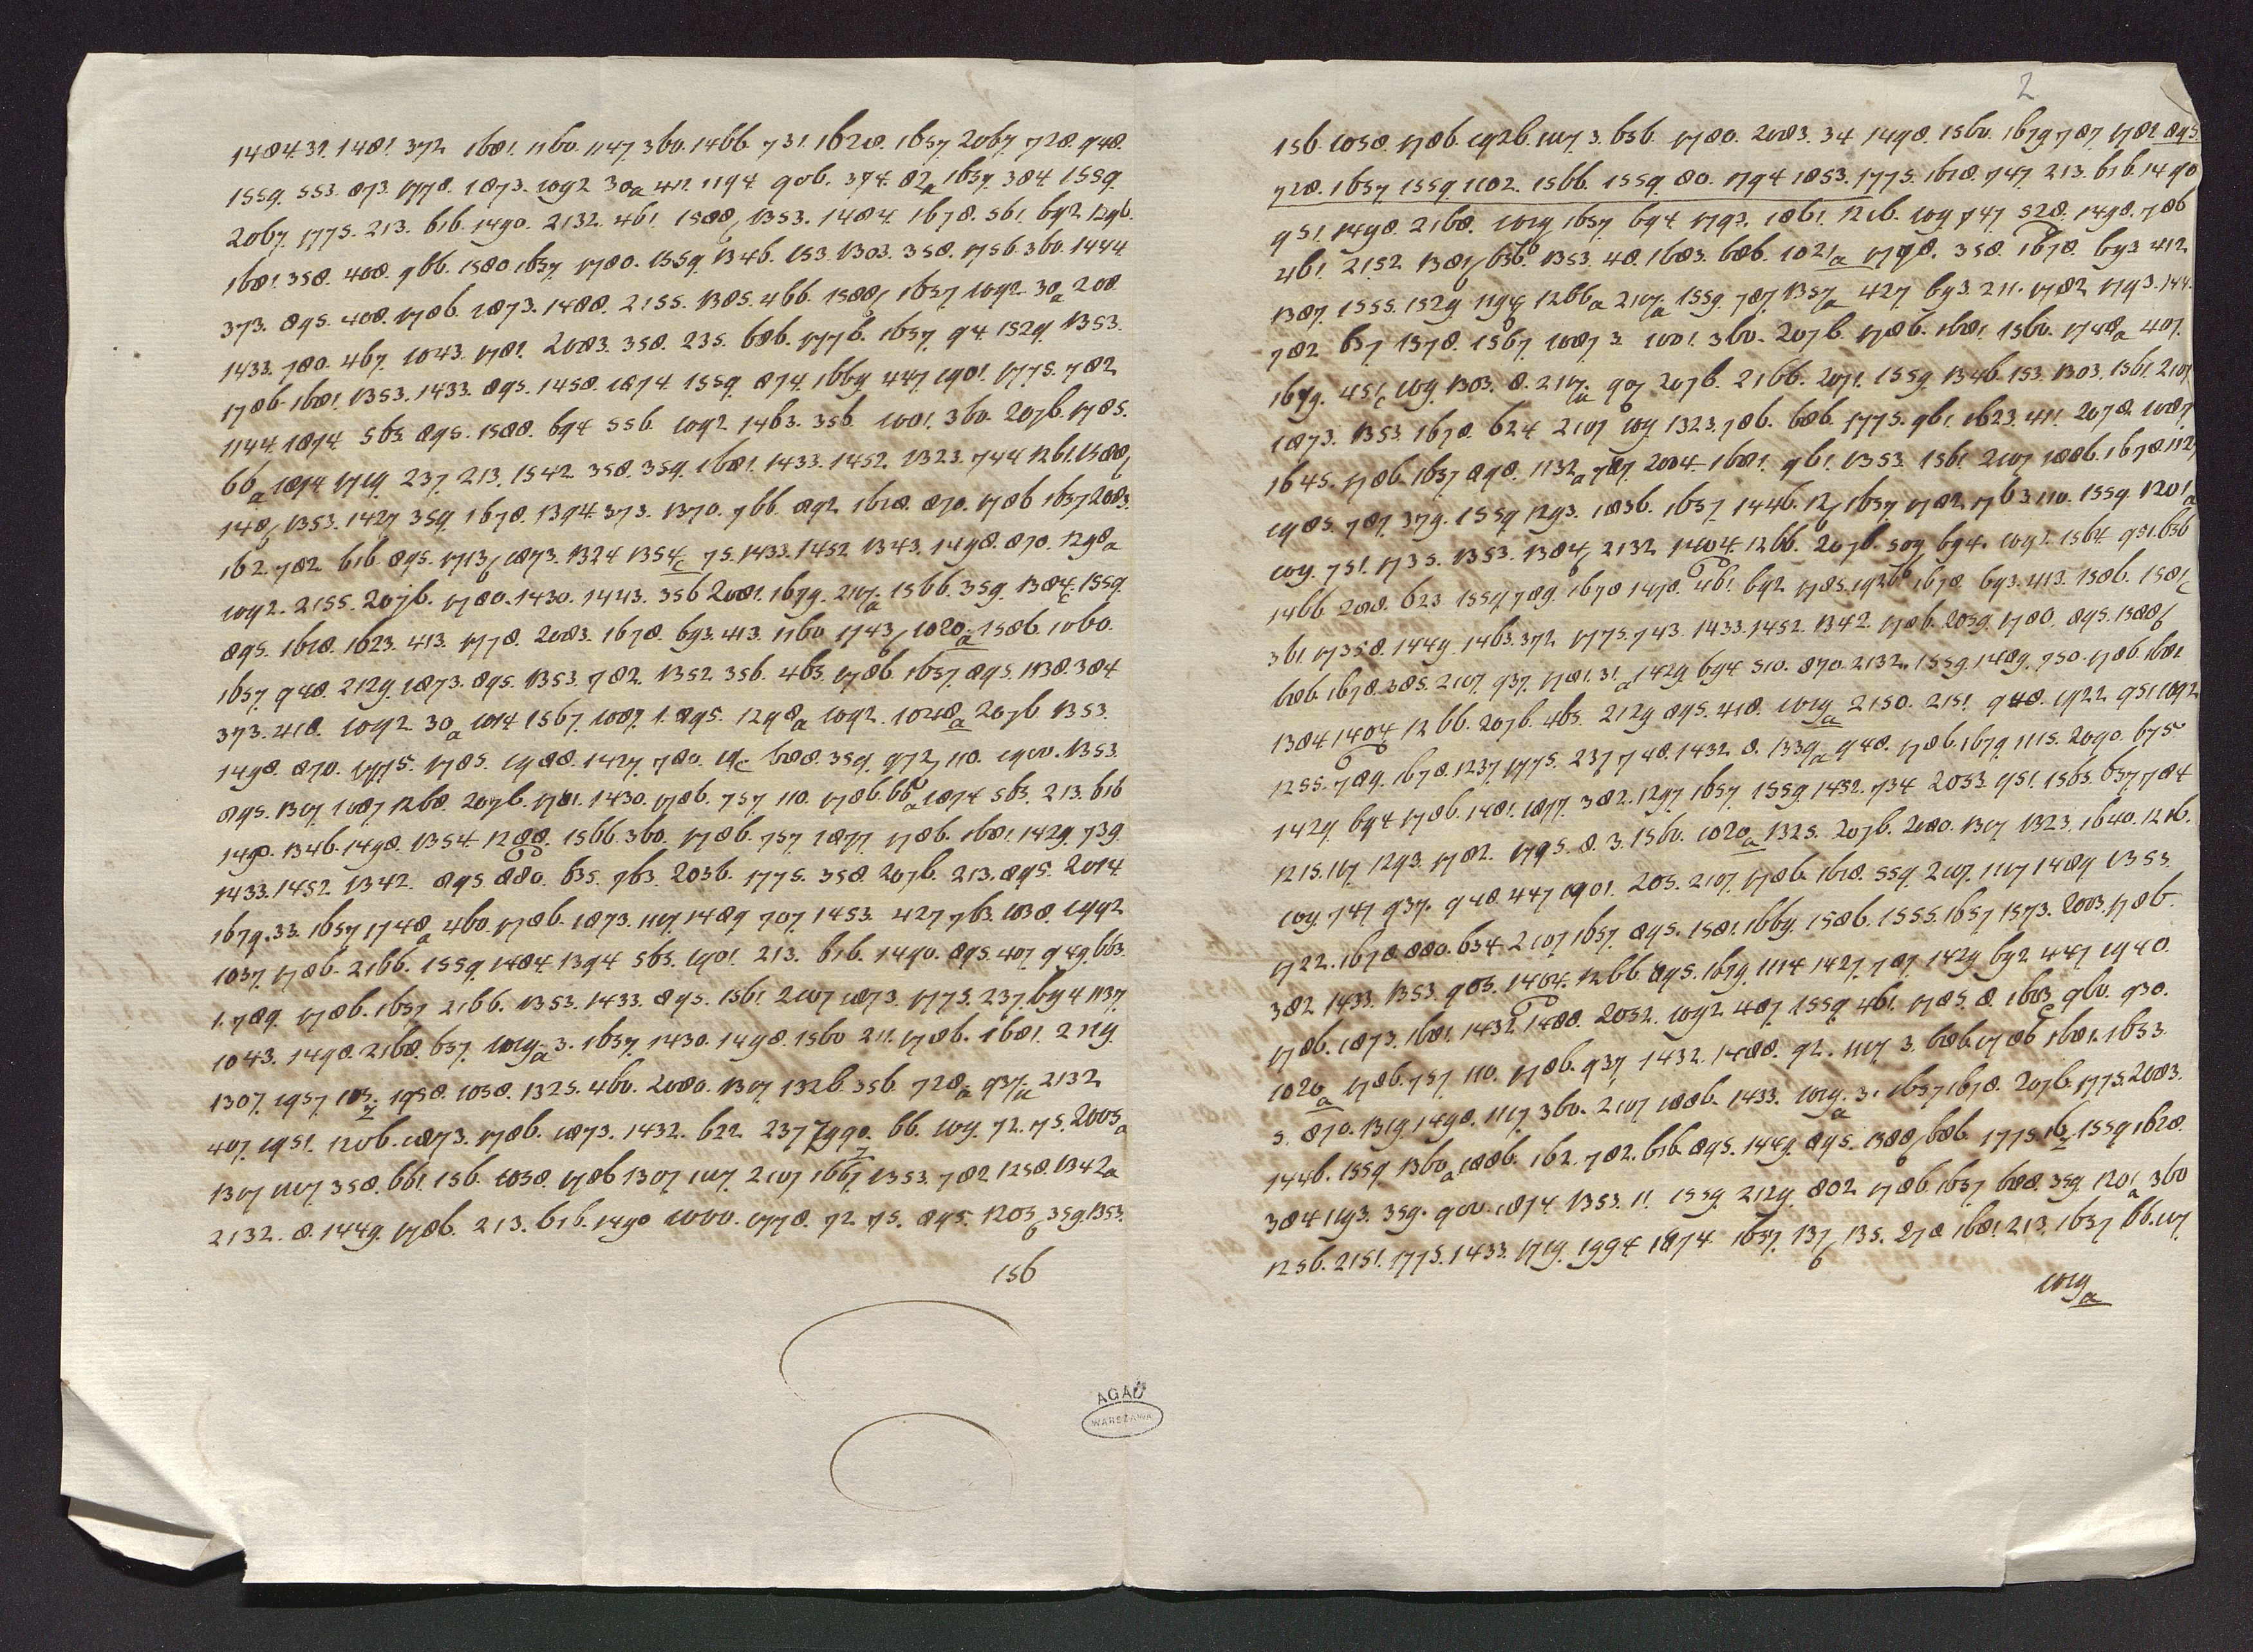 1484. 31. 1481. 372. 1681. 1160. 1147. 360. 1466. 731. 1628. 1657. 2067. 728. 948.
1559. 553. 873. 1778. 1873. 1092 30a 412 1194. 906. 374. 82a 1657. 384. 1559.
2067. 1775. 213. 616. 1490. 2132. 461. 1588/ 1353. 1484. 1678. 561. 692. 1296.
1681. 358. 408. 966. 1580 1657. 1780. 1559 1346. 153. 1303. 358. 1756. 360. 1444.
373. 895. 408. 1786. 1873. 1488. 2155. 1385. 466. 1588/ 1657 1092 30a 208.
1433. 780. 467. 1043. 1781. 2083. 358. 235. 686. 1776. 1657. 94. 1529. 1353.
1786. 1681. 1353. 1433. 895. 1458. 1874. 1559. 874. 1669. 447. 1901. 1775. 782
1144. 1874. 563. 895. 1588. 694 556. 1092. 1463. 356. 1001. 360. 2076. 1785.
66a 1874 1719. 237. 213. 1542. 358. 359. 1681. 1433. 1452. 1323. 744 1261. 1588/
148/6 1353. 1427 359. 1678. 1394. 373. 1370. 766. 892. 1618. 870. 1786 1657 2083.
162. 782. 616. 895. 1713/6 1873. 1324 1354c 75. 1433. 1452 1343. 1498. 870. 1298a
1092. 2155. 2076. 1780. 1430. 1443. 356 2081. 1679. 2107a 1566. 359. 1384c. 1559.
895. 1618. 1623. 413. 1778. 2083. 1678. 693. 413. 1160 1743/6 1020a 1586. 1060.
1657. 948. 2129. 1873. 895. 1353. 782. 1352. 356. 463. 1786. 1657. 895. 1138. 384
373. 418. 1092 30a 1014 1567. 1087. 1. 895. 1298a 1092. 1048a 2076 1353.
1498. 870. 1775. 1785. 1988. 1427. 780. 19c 688. 359. 972, 110. 1900. 1353.
895. 1307. 1087. 1268. 2076. 1781. 1430. 1786. 757. 110. 1786. 66a 1874 563. 213. 616
1490. 1346. 1498. 1354 1288. 1566. 360. 1786. 757 1877 1786. 1681. 1429. 739.
1433. 1452. 1342. 895. 880. 635. 763. 2036. 1775. 358. 2076. 213. 895. 2014.
1679. 33. 1657 1748a 460. 1786. 1873. 1107. 1489 707. 1453. 427 763. 1038. 1992
1037 1786. 2166. 1559 1484. 1394 563. 1901. 213. 616. 1490. 895. 407. 949. 663.
1. 789. 1786. 1657 2166. 1353. 1433. 895. 1561. 2107 1873. 1775. 237. 694 1137.
1043. 1498. 2168. 637. 1019a 3. 1657. 1430. 1498. 1560 211. 1786. 1681. 2119.
1307. 1957 103z 1958. 1058. 1325. 460. 2080. 1307 1326. 356. 728a 937a 2132
407. 1951. 1206. 1873. 1786. 1873. 1432. 622. 237 7990z. 66. 109. 72. 75. 2003a
1307 1107. 358. 661. 156. 1058. 1786 1307 1107. 2107 1667. 1353. 782. 1258. 1342a
2132. 8. 1449. 1786. 213. 616. 1490 1000. 1778. 72 75. 895. 1203/6 359. 1353.
156
AGAD
WARSZAWA
2
156. 1058. 1786. 1926. 1107 3. 636. 1780. 2083. 34 1498. 1560. 1679 787 1782 895
728. 1657 1559 1102. 1566. 1559. 80. 1794 1853. 1775. 1618. 747. 213. 616. 1490
951. 1498. 2168. 1019 1657. 694 1793. 1861. 1216. 109. 747 528. 1498. 786
461. 2152 1381/6 636. 1353. 48. 1683. 686. 1021a 1798. 358. 1678. 693 412
1387. 1555. 1529. 1194 1266a 2107a 1559. 787 1357a 427 693. 211. 1782 1793. 144.
782. 637 1378. 1567. 1087 3. 1001. 360. 2076. 1786. 1681. 1560. 1748a 407.
1679. 451c 109. 1303. 8. 2107a 907 2076. 2166. 2071. 1559. 1346. 153. 1303. 1561. 2107
1873. 1353. 1678. 624 2107 109. 1323. 786. 686. 1775. 961. 1623. 411. 2078 1087.
1645. 1786. 1657. 898. 1132a 787. 2004. 1681. 961. 1353. 1561 2107 1886. 1678. 1127
1985. 787. 379. 1559 1293. 1836. 1657. 1446. 12/6 1657 1782 1763 110. 1559 1201a
109. 751. 1735. 1353. 1384/6 2132 1404. 1266. 2076. 509 694. 1092. 1564 951. 636
1466. 208. 623. 1559 789. 1678 1478. 461. 692 1785. 1926. 1678. 693. 413. 1586. 1581c
361. 1735 8. 1449. 1463. 372. 1775. 743. 1433. 1452. 1342. 1786. 2059. 1780. 895. 1388/6
686. 1678. 385. 2107. 937. 1781. 31a 1429 694 510. 870. 2132. 1559. 1489. 750. 1786. 1681
1384 1404 1266. 2076. 463. 2129 895. 418. 1019a 2150. 2151. 948. 1922 951. 1092
1255. 789. 1678. 1237 1775. 237 748. 1432 8. 1339a 948. 1786. 1679. 1115. 2090. 675
1429 694 1786. 1481. 1877. 382. 1297 1657. 1559. 1432. 734 2053. 951. 1563. 637 784
1215. 107. 1293. 1782. 1795. 8. 3. 1560. 1020a 1325. 2076. 2080. 1307 1323. 1640. 1216.
109. 747 937. 948. 447 1901. 205. 2107. 1786. 1618. 559. 2107. 1107 1489 1353.
1722. 1678. 880. 634 2107 1657. 895. 1581. 1669. 1586. 1555. 1657 1573. 2003. 1786.
382 1433. 1353. 905. 1404. 1266 895. 1679. 1114 1427. 787. 1429 692 447 1940.
1786. 1873. 1681. 1432 1488. 2052. 1092 487. 1559. 461. 1785. 8. 1683. 960. 930.
1020a 1786. 757. 110. 1786. 937 1432. 1488. 92. 1107 3. 686. 1786 1681. 1653.
3. 870. 1319. 1498. 1117. 360. 2107 1886. 1433. 1019a. 3. 1657 1678. 2076. 1775. 2083.
1446. 1559. 1360a 1886. 162. 782. 616 895. 1449. 895. 1388/6 686. 1775. 16z. 1559 1628.
384 1193. 359. 900. 1874 1353. 11. 1559. 2129. 802 1786. 1657 688. 359. 1201a 360
1256. 2151. 1775. 1433. 1719. 1994 1874 1657. 137/6 135. 278 1681. 213. 1657 66. 107
1019a